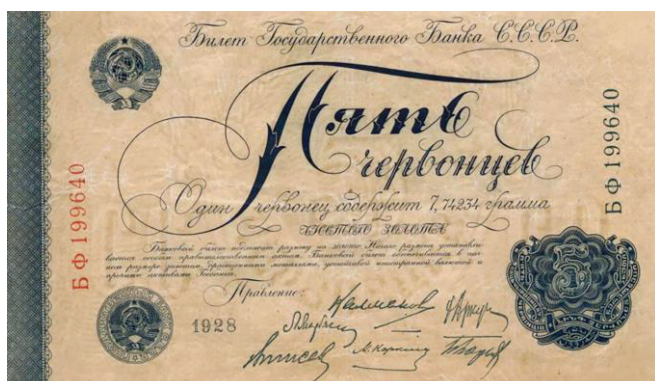 Билет Государственного Банка С.С.С.Р.
Пять
червонцев
Один червонец содержит 7,74234 грамма
чистого золота
Банковый билет подлежит размену на золото. Начало размена устанавли-
вается особым правительственным актом. Банковый билет обеспечивается в пол-
ном размере золотом, драгоценными металлами, устойчивой иностранной валютой и
прочими активами Госбанка.
Правление:
1928
БФ 199640
БФ 199640
5